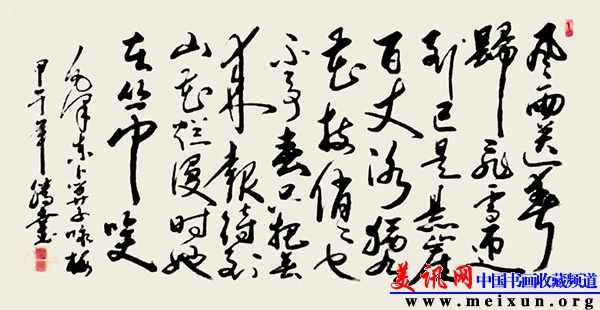 风雨送春
歸飛雪迎
到已是悬崖
百丈冰犹有
花枝俏〻也
不争春只把春
来報待到
山花烂漫时她
在丛中咲
毛泽东卜算子咏梅
甲午年腾书
美讯网 中国书画收藏频道
www.meixun.org